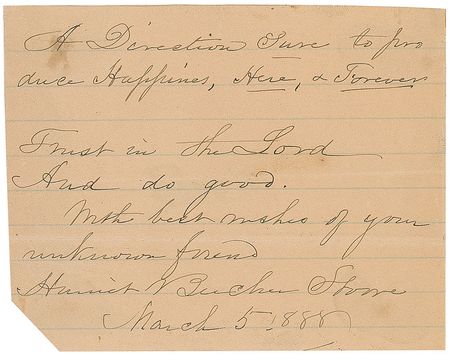 A Direction sure to pro
duce Happines, Here, & Forever
Trust in the Lord
And do good.
With best wishes of your
unknown friend
Harriet Beecher Stowe
March 5 1888